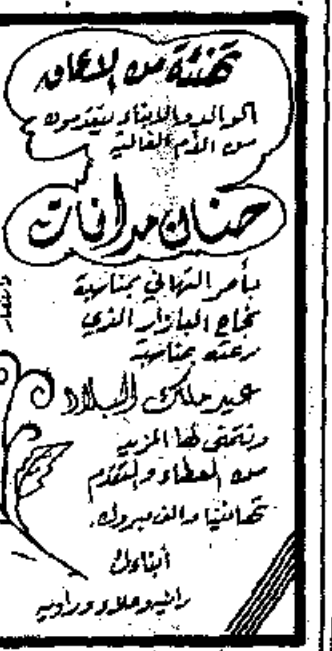 تهنئة من الاعماق
الوالد والابناء يتقدمون
من الأم الغالية
حنان مدانات
بأحر التهاني بمناسبة
نجاح البازار الذي
رعته بمناسبة
عيد ملك البلاد
ونتمنى لها المزيد
من العطاء والتقدم
تهانينا والف مبروك.
أبناءك
رانيا وعلاء وراويه